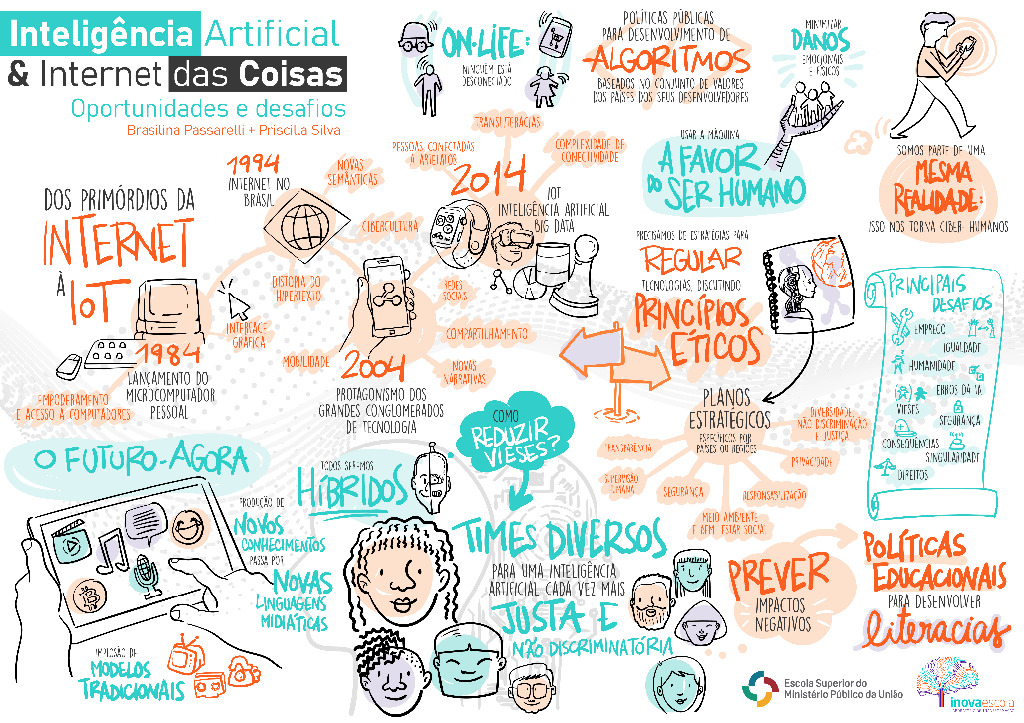 Inteligência Artificial
& Internet das Coisas
Oportunidades e desafios
Brasilina Passarelli + Priscila Silva
ON-LIFE:
NINGUÉM ESTÁ
DESCONECTADO
POLÍTICAS PÚBLICAS
PARA DESENVOLVIMENTO DE
ALGORITMOS
BASEADOS NO CONJUNTO DE VALORES
DOS PAÍSES DOS SEUS DESENVOLVEDORES
MINIMIZAR
DANOS
EMOCIONAIS
E FÍSICOS
USAR A MÁQUINA
A FAVOR
DO SER HUMANO
SOMOS PARTE DE UMA
MESMA
REALIDADE:
ISSO NOS TORNA CIBER-HUMANOS
DOS PRIMÓRDIOS DA
INTERNET
À
IoT
1984
LANÇAMENTO DO
MICROCOMPUTADOR
PESSOAL
EMPODERAMENTO
E ACESSO A COMPUTADORES
INTERFACE
GRÁFICA
1994
INTERNET NO
BRASIL
NOVAS
SEMÂNTICAS
CIBERCULTURA
HISTÓRIA DO
HIPERTEXTO
2004
PROTAGONISMO DOS
GRANDES CONGLOMERADOS
DE TECNOLOGIA
MOBILIDADE
REDES
SOCIAIS
COMPARTILHAMENTO
NOVAS
NARRATIVAS
2014
IOT
INTELIGÊNCIA ARTIFICIAL
BIG DATA
PESSOAS CONECTADAS
A ARTEFATOS
TRANSLITERACIAS
COMPLEXIDADE DE
CONECTIVIDADE
PRECISAMOS DE ESTRATÉGIAS PARA
REGULAR
TECNOLOGIAS, DISCUTINDO
PRINCÍPIOS
ÉTICOS
PLANOS
ESTRATÉGICOS
ESPECÍFICOS POR
PAÍSES OU REGIÕES
TRANSPARÊNCIA
SUPERVISÃO
HUMANA
SEGURANÇA
MEIO AMBIENTE
E BEM ESTAR SOCIAL
RESPONSABILIZAÇÃO
PRIVACIDADE
DIVERSIDADE
NÃO DISCRIMINAÇÃO
E JUSTIÇA
PRINCIPAIS
DESAFIOS
EMPREGO
IGUALDADE
HUMANIDADE
ERROS DA IA
VIESES
SEGURANÇA
CONSEQUÊNCIAS
SINGULARIDADE
DIREITOS
O FUTURO-AGORA
PRODUÇÃO DE
NOVOS
CONHECIMENTOS
PASSA POR
NOVAS
LINGUAGENS
MIDIÁTICAS
IMPLOSÃO DE
MODELOS
TRADICIONAIS
TODOS SEREMOS
HÍBRIDOS
COMO
REDUZIR
VIESES?
TIMES DIVERSOS
PARA UMA INTELIGÊNCIA
ARTIFICIAL CADA VEZ MAIS
JUSTA E
NÃO DISCRIMINATÓRIA
PREVER
IMPACTOS
NEGATIVOS
POLÍTICAS
EDUCACIONAIS
PARA DESENVOLVER
literacias
Escola Superior do
Ministério Público da União
inovaescola